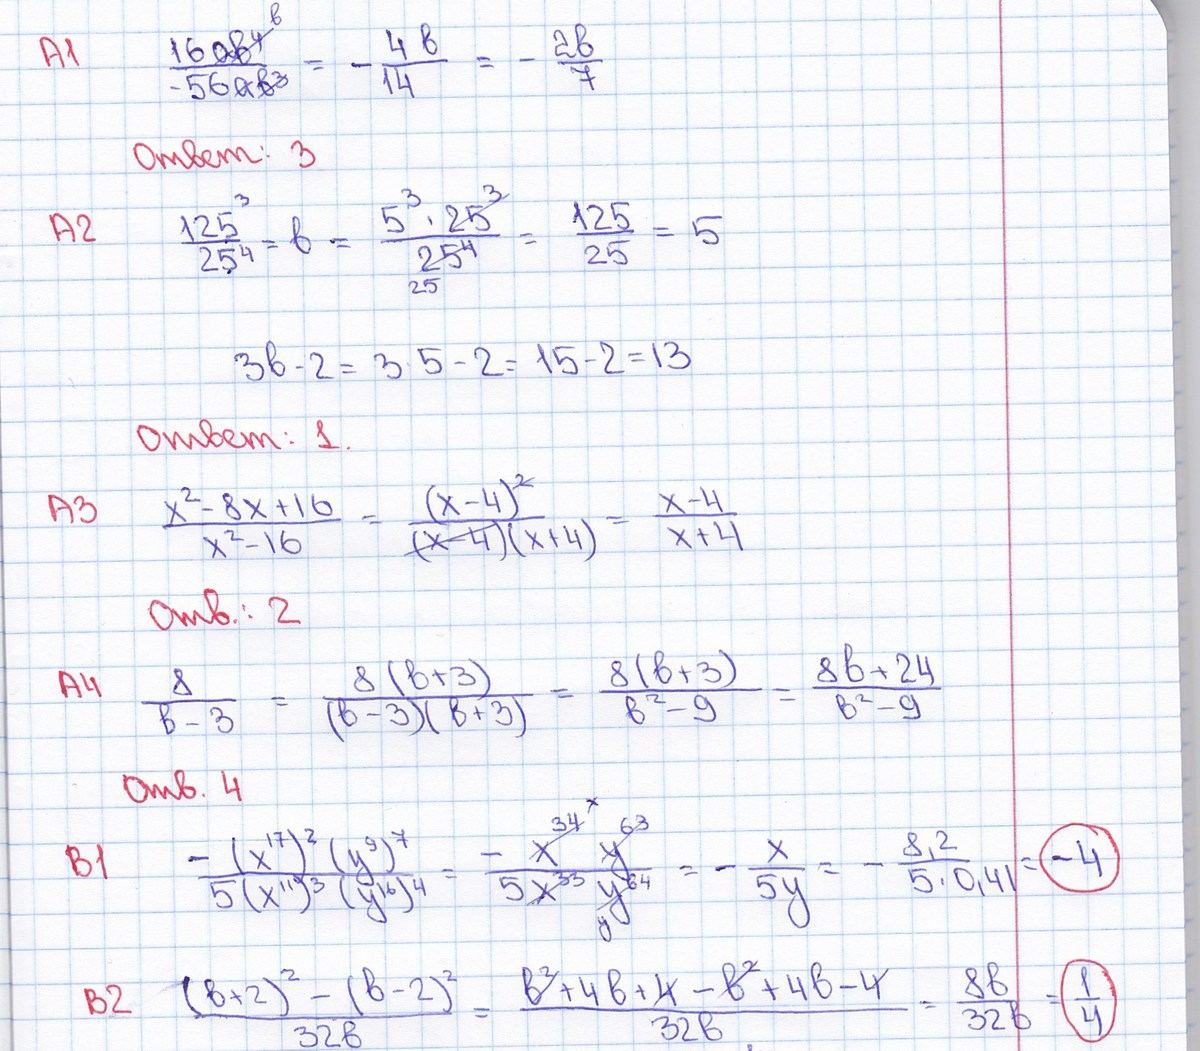 А1 16ab⁴/-56ab³ b = - 4b/14 = - 2b/7
Ответ: 3
А2 125³/25⁴ = b = 5³·25³/25⁴ 25 = 125/25 = 5
3b-2 = 3·5-2 = 15-2=13
Ответ: 1.
А3 x²-8x+16/x²-16 = (x-4)²/(x-4)(x+4) = x-4/x+4
Отв.: 2
А4 8/b-3 = 8(b+3)/(b-3)(b+3) = 8(b+3)/b²-9 = 8b+24/b²-9
Отв. 4
В1 -(x¹⁷)²(y⁹)⁷/5(x¹¹)³(y¹⁶)⁴ = -x³⁴ x y⁶³/5x³³ y⁶⁴ y = - x/5y = - 8,2/5·0,41 = -4
В2 (b+2)²-(b-2)²/32b = b²+4b+4-b²+4b-4/32b = 8b/32b = 1/4